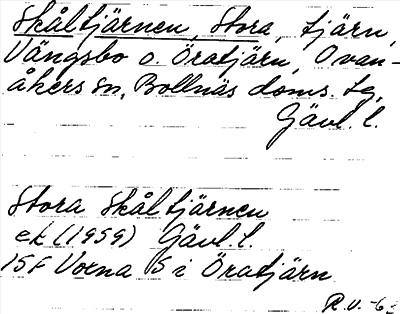 Skåltjärnen, Stora, tjärn,
Vängsbo o. Öratjärn, Ovan-
åkers sn, Bollnäs doms. tg,
Gävl. l.
Stora Skåltjärnen
ek (1959) Gävl. l.
15F Voxna 5 i Öratjärn
R.U. -62